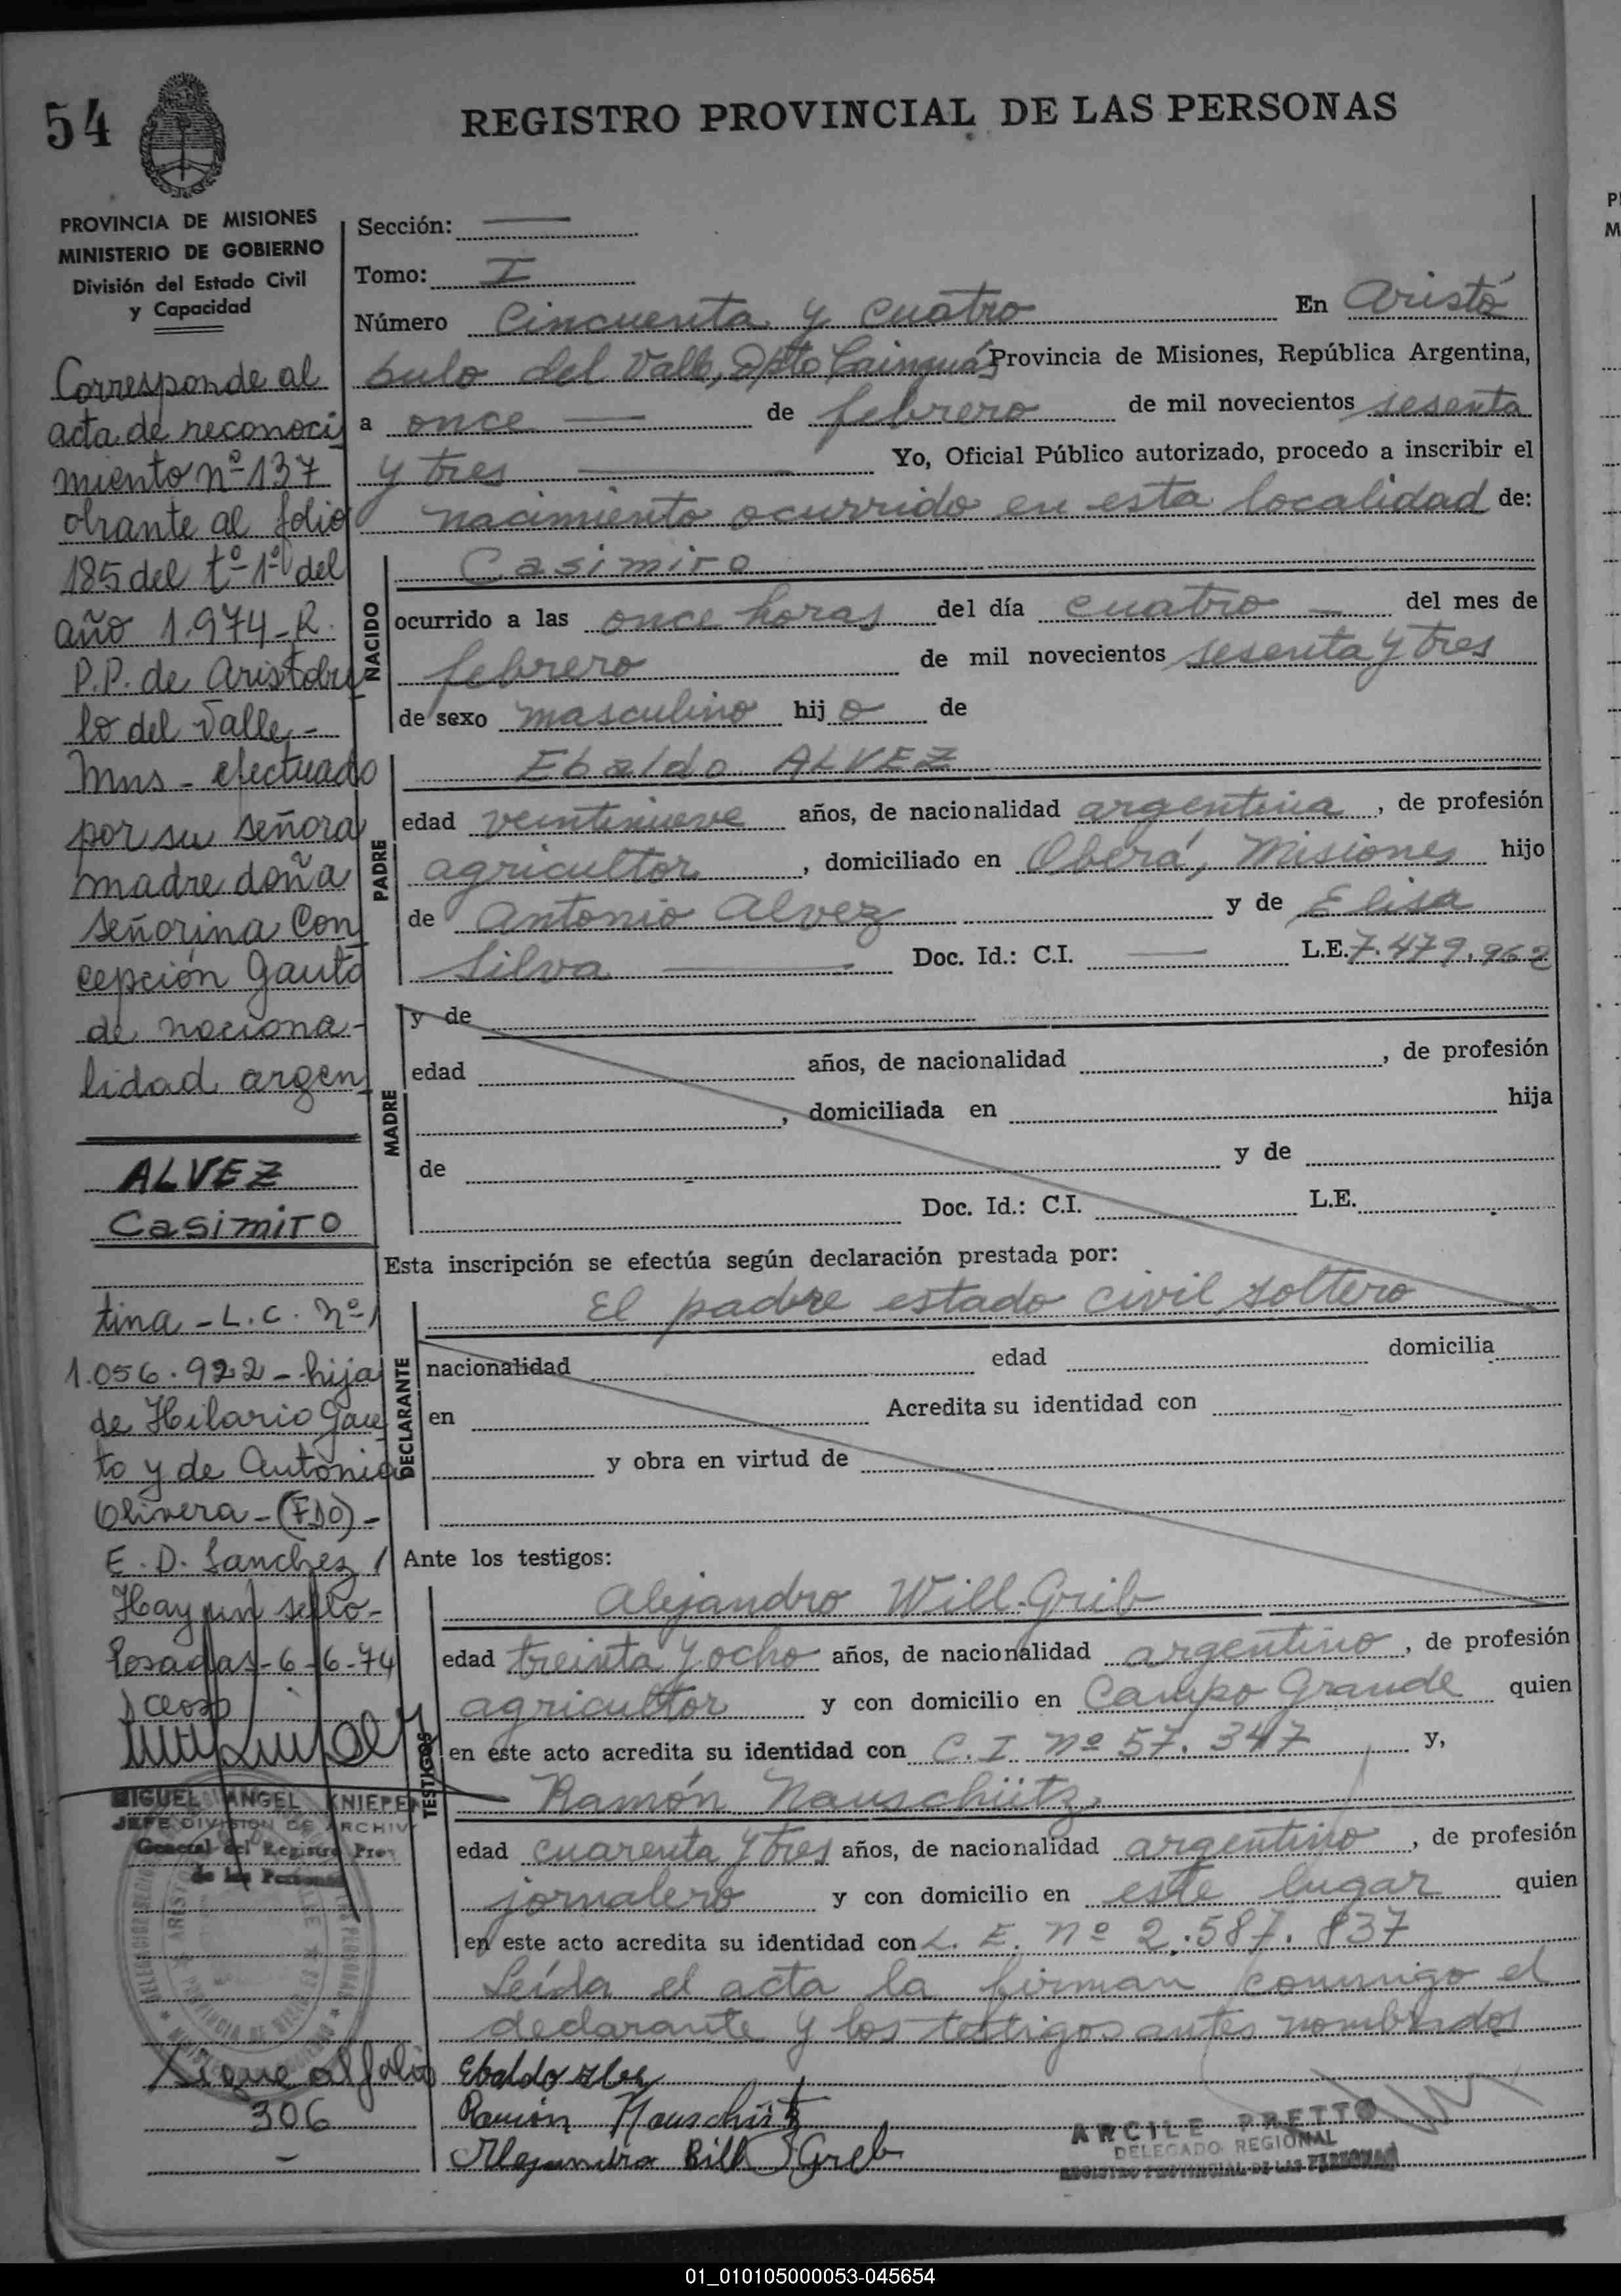 54
REGISTRO PROVINCIAL DE LAS PERSONAS
PROVINCIA DE MISIONES
MINISTERIO DE GOBIERNO
División del Estado Civil
y Capacidad
Corresponde al
acta de reconoci
miento nº 137
obrante al folio
185 del tº 1º del
año 1.974-R.
P.P. de Aristobu
lo del Valle-
Mns - efectuado
por su señora
madre doña
Señorina Con
cepción Gauto
de naciona-
lidad argen
ALVEZ
Casimiro
tina - L.C. nº
1.056.922 - hija
de Hilario Gau
to y de Antonia
Olivera - (FDO) -
E. D. Sanchez /
Hay un sello -
Posadas - 6-6-74
MIGUEL ANGEL KNIEPE
JEFE DIVISION DE ARCHIV
General del Registro Pro
de las Personas
Sigue al folio
306
Sección:
Tomo: I
Número Cincuenta y cuatro En Aristó
bulo del Valle, Dpto Cainguás Provincia de Misiones, República Argentina,
a once de febrero de mil novecientos sesenta
y tres Yo, Oficial Público autorizado, procedo a inscribir el
nacimiento ocurrido en esta localidad de:
NACIDO
Casimiro
ocurrido a las once horas del día cuatro del mes de
febrero de mil novecientos sesenta y tres
de sexo masculino hijo de
PADRE
Ebaldo ALVEZ
edad veintinueve años, de nacionalidad argentina, de profesión
agricultor, domiciliado en Oberá, Misiones hijo
de Antonio Alvez y de Elisa
Silva Doc. Id.: C.I. L.E. 7.479.962
MADRE
y de
edad años, de nacionalidad , de profesión
, domiciliada en hija
de y de
Doc. Id.: C.I. L.E.
Esta inscripción se efectúa según declaración prestada por:
DECLARANTE
El padre estado civil soltero
nacionalidad edad domicilia
en Acredita su identidad con
y obra en virtud de
Ante los testigos:
TESTIGOS
Alejandro Will-Grib
edad treinta y ocho años, de nacionalidad argentino, de profesión
agricultor y con domicilio en Campo Grande quien
en este acto acredita su identidad con C.I. nº 57.347 y,
Ramón Nauschütz
edad cuarenta y tres años, de nacionalidad argentino, de profesión
jornalero y con domicilio en este lugar quien
en este acto acredita su identidad con L.E. nº 2.587.837
Leída el acta la firman conmigo el
declarante y los testigos antes nombrados
Ebaldo
Ramón Nauschütz
Alejandro Bill Greb
ARCILE PRETTO
DELEGADO REGIONAL
REGISTRO PROVINCIAL DE LAS PERSONAS
01_010105000053-045654